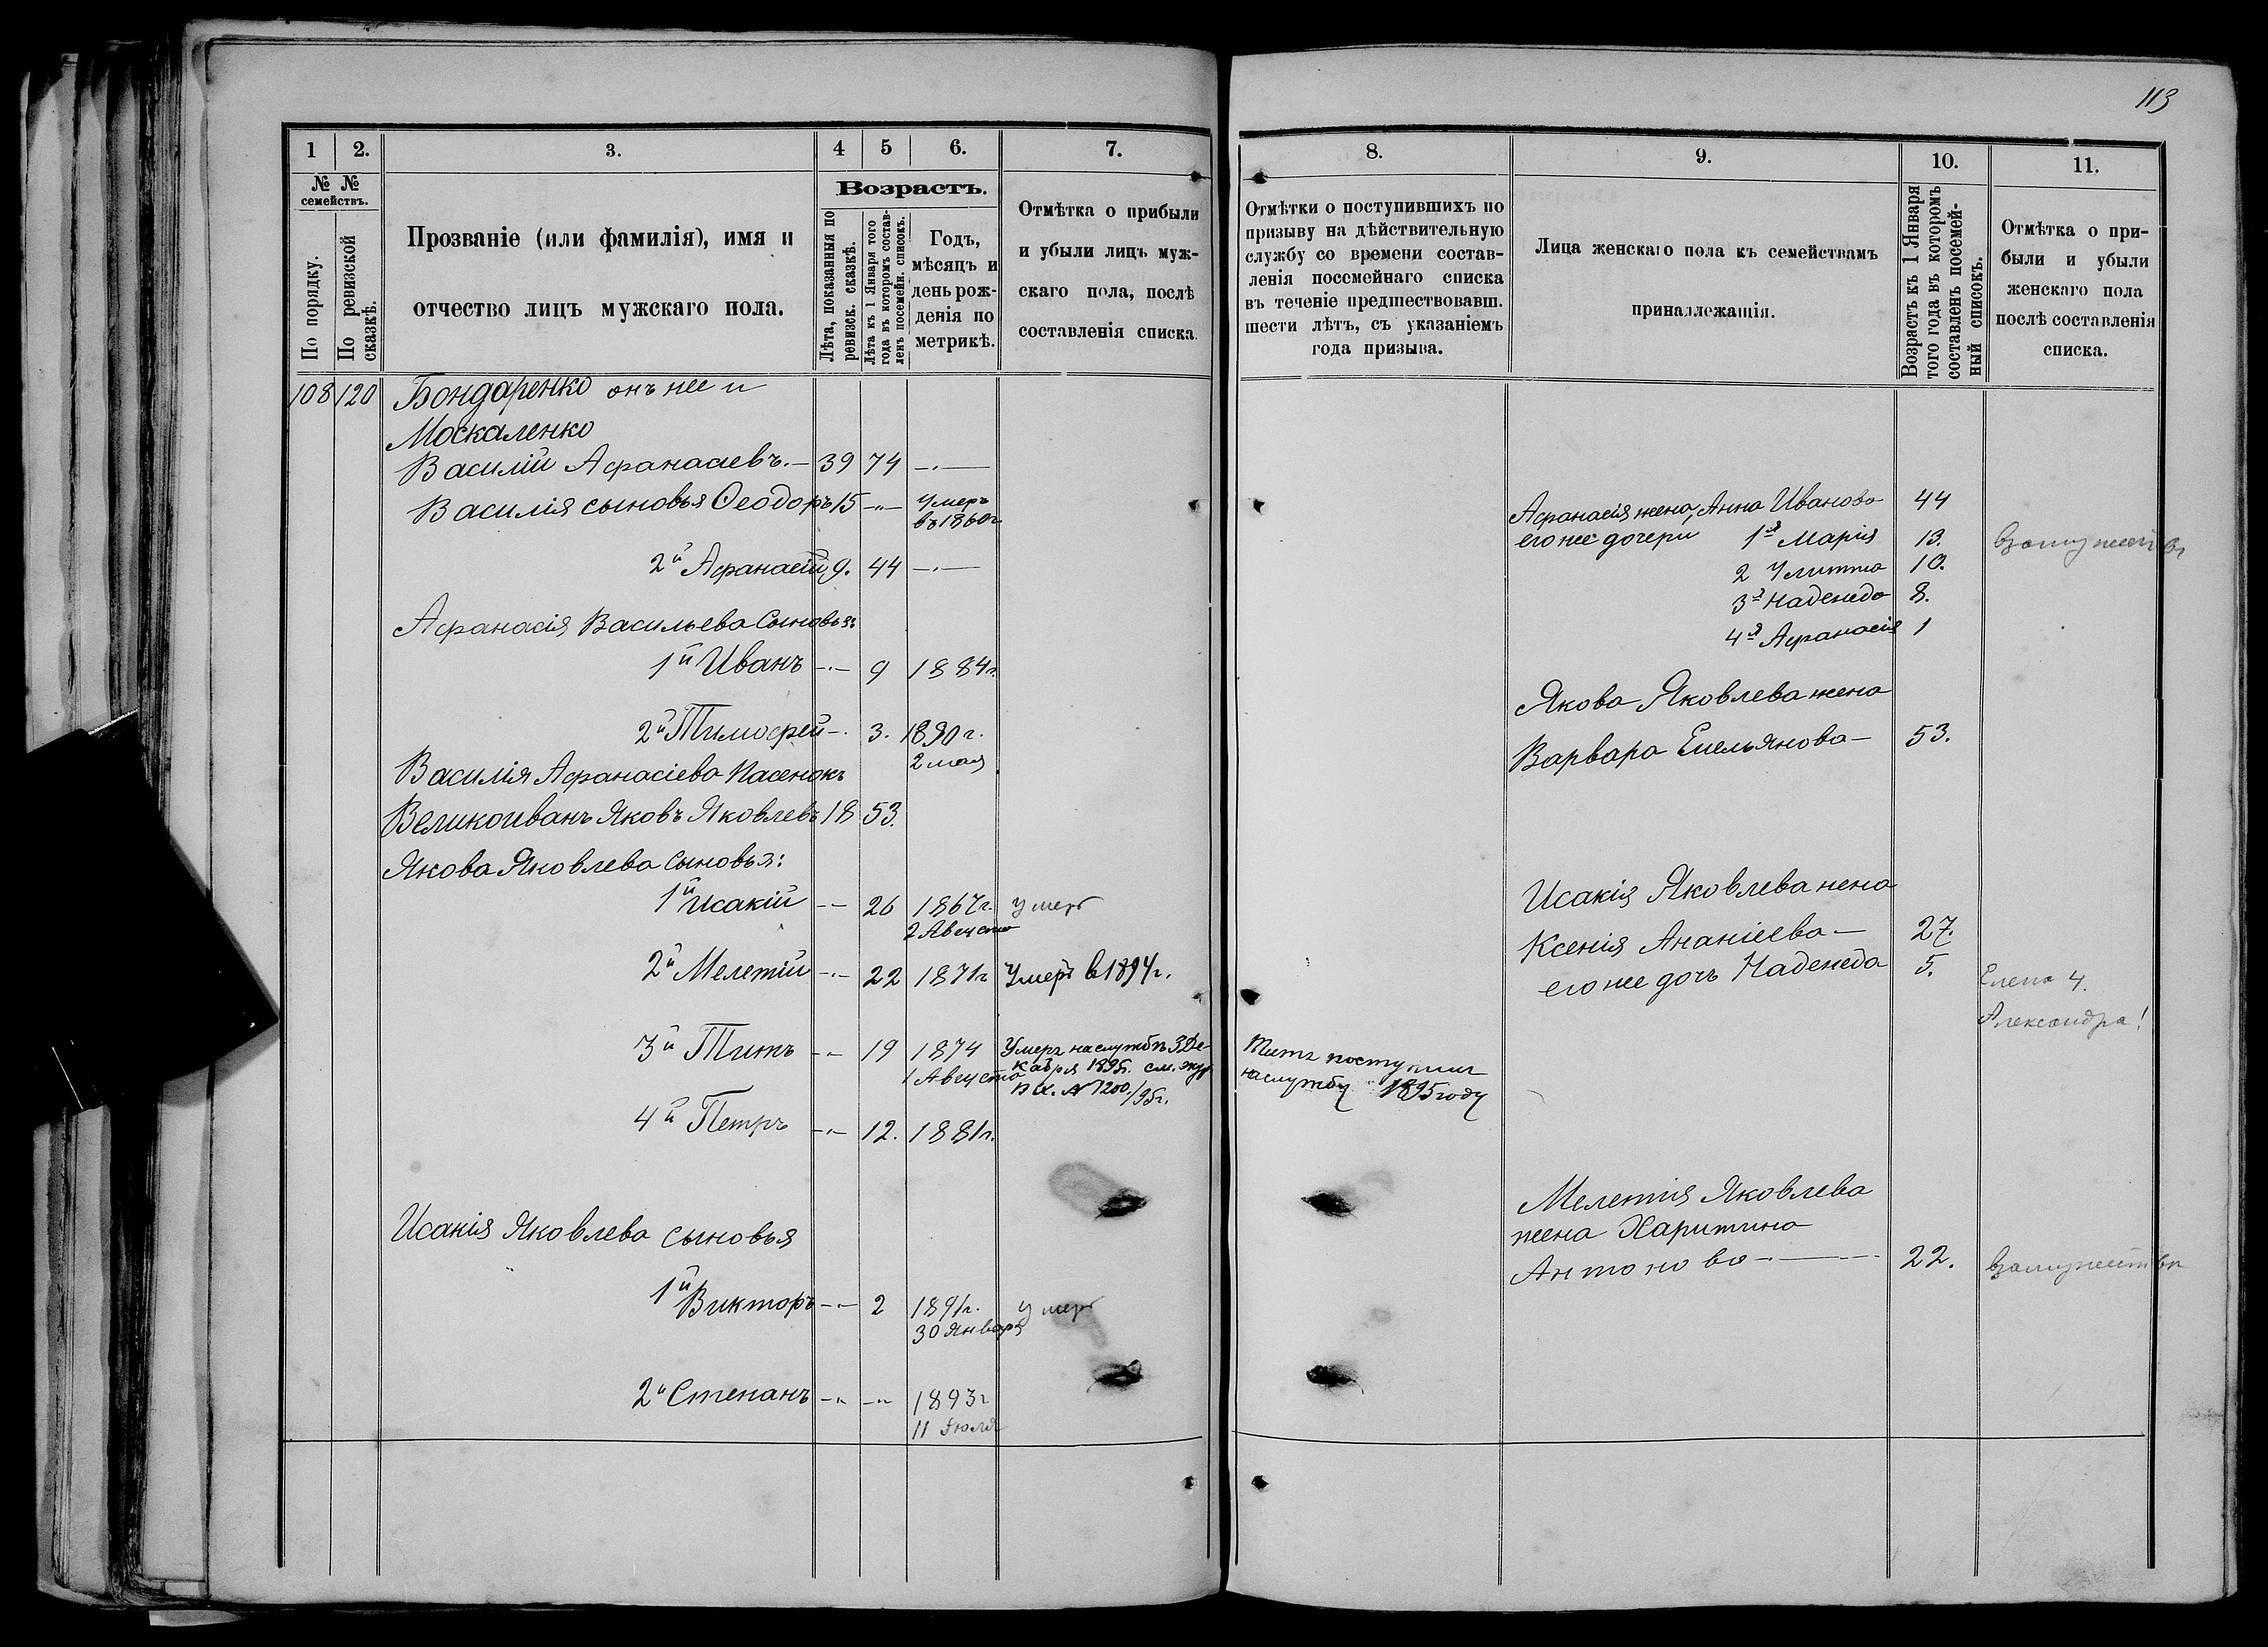 113
1 2. 3. 4 5 6. 7.
№ № семействъ.
По порядку.
По ревизской сказкѣ.
Прозваніе (или фамилія), имя и
отчество лицъ мужскаго пола.
Возрастъ.
Лѣта, показанныя по ревизск. сказкѣ.
Лѣта къ 1 Января того года въ которомъ составленъ посемейн. списокъ.
Годъ,
мѣсяцъ и
день рож-
денія по
метрикѣ.
Отмѣтка о прибыли
и убыли лицъ муж-
скаго пола, послѣ
составленія списка.
108 120 Бондаренко онъ же и
Москаленко
Василій Афанасіевъ.— 39 74 —.—
Василія сыновья Ѳеодоръ 15 —„— Умеръ
въ 1860г
2й Афанасій 9. 44 —.—
Афанасія Васильева Сыновья:
1й Иванъ —.— 9 1884г.
2й Тимофей —. 3. 1890г.
2 мая
Василія Афанасіева Пасенокъ
Великоиванъ Яковъ Яковлевъ 18 53.
Якова Яковлева сыновья:
1й Исакій —— 26 1867г. умеръ
2 Августа
2й Мелетій —.— 22 1871г Умеръ в 1894г.
3й Титъ —— 19 1874 Умеръ на службѣ 3 Де-
1 Августа кабря 1895г. см. жур
вх. № 1200/95г.
4й Петръ —.— 12. 1881г.
Исакія Яковлева сыновья
1й Викторъ —.— 2 1891г. умеръ
30 Января
2й Степанъ —„ —„ 1893г
11 Іюля
8. 9. 10. 11.
Отмѣтки о поступившихъ по
призыву на дѣйствительную
службу со времени состав-
ленія посемейнаго списка
въ теченіе предшествовавш.
шести лѣтъ, съ указаніемъ
года призыва.
Лица женскаго пола къ семействамъ
принадлежащія.
Возрастъ къ 1 Января
того года въ которомъ
составленъ посемей-
ный списокъ.
Отмѣтка о при-
были и убыли
женскаго пола
послѣ составленія
списка.
Афанасія жена, Анна Иванова 44
его же дочери 1я Марія 13. Взамужестве
2 Улитта 10.
3я Надежда 8.
4я Афанасія 1
Якова Яковлева жена
Варвара Емельянова— 53.
Исакія Яковлева жена
Ксенія Ананіева— 27.
его же дочь Надежда 5.
Елена 4.
Александра 1
Титъ поступил
на службу 1895 году
Мелетія Яковлева
жена Харитина
Антонова—.——— 22. Взамужестве